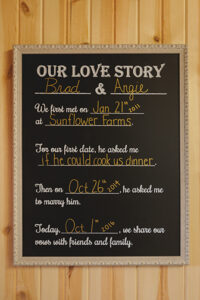 OUR LOVE STORY
Brad & Angie
We first met on Jan 21st 2011
at Sunflower Farms.
For our first date, he asked me
if he could cook us dinner.
Then on Oct 26th 2014, he asked me
to marry him.
Today, Oct 1st 2016, we share our
vows with friends and family.